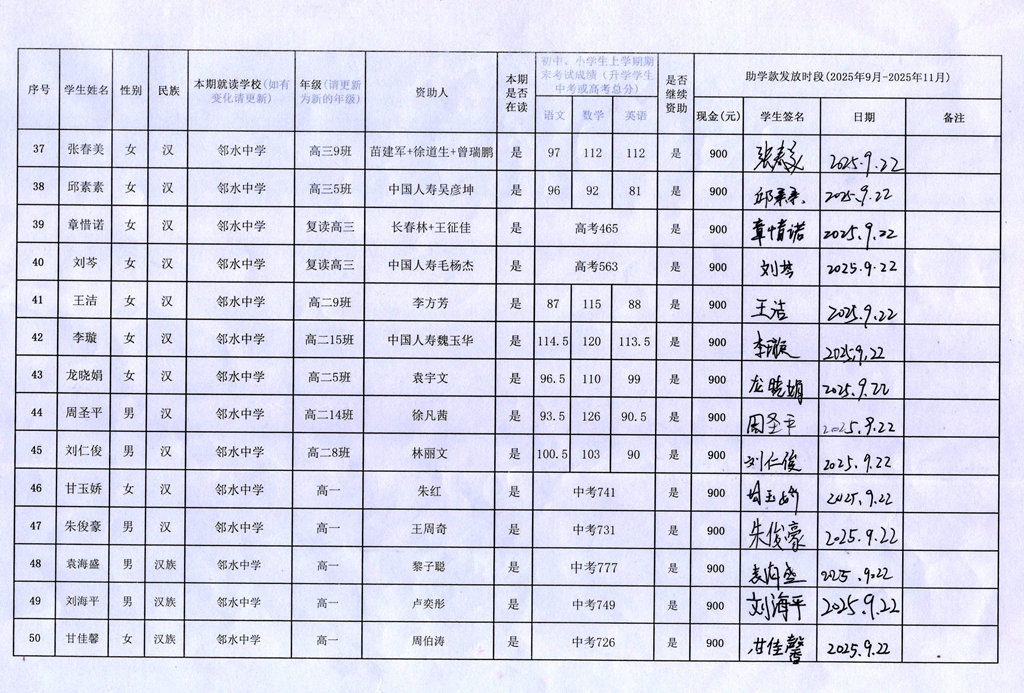 序号 学生姓名 性别 民族 本期就读学校(如有变化请更新) 年级(请更新为新的年级) 资助人 本期是否在读 初中、小学生上学期期末考试成绩(升学学生中考或高考总分) 是否继续资助 助学款发放时段(2025年9月-2025年11月)
语文 数学 英语 现金(元) 学生签名 日期 备注
37 张春美 女 汉 邻水中学 高三9班 苗建军+徐道生+曾瑞鹏 是 97 112 112 是 900 张春美 2025.9.22
38 邱素素 女 汉 邻水中学 高三5班 中国人寿吴彦坤 是 96 92 81 是 900 邱素素 2025.9.22
39 章惜诺 女 汉 邻水中学 复读高三 长春林+王征佳 是 高考465 是 900 章惜诺 2025.9.22
40 刘芩 女 汉 邻水中学 复读高三 中国人寿毛杨杰 是 高考563 是 900 刘芩 2025.9.22
41 王洁 女 汉 邻水中学 高二9班 李方芳 是 87 115 88 是 900 王洁 2025.9.22
42 李璇 女 汉 邻水中学 高二15班 中国人寿魏玉华 是 114.5 120 113.5 是 900 李璇 2025.9.22
43 龙晓娟 女 汉 邻水中学 高二5班 袁宇文 是 96.5 110 99 是 900 龙晓娟 2025.9.22
44 周圣平 男 汉 邻水中学 高二14班 徐凡茜 是 93.5 126 90.5 是 900 周圣平 2025.9.22
45 刘仁俊 男 汉 邻水中学 高二8班 林丽文 是 100.5 103 90 是 900 刘仁俊 2025.9.22
46 甘玉娇 女 汉 邻水中学 高一 朱红 是 中考741 是 900 甘玉娇 2025.9.22
47 朱俊豪 男 汉 邻水中学 高一 王周奇 是 中考731 是 900 朱俊豪 2025.9.22
48 袁海盛 男 汉族 邻水中学 高一 黎子聪 是 中考777 是 900 袁海盛 2025.9.22
49 刘海平 男 汉族 邻水中学 高一 卢奕彤 是 中考749 是 900 刘海平 2025.9.22
50 甘佳馨 女 汉族 邻水中学 高一 周伯涛 是 中考726 是 900 甘佳馨 2025.9.22